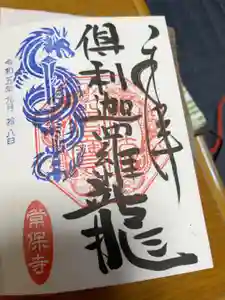 奉拝
倶利伽羅龍
令和五年九月拾八日
常保寺